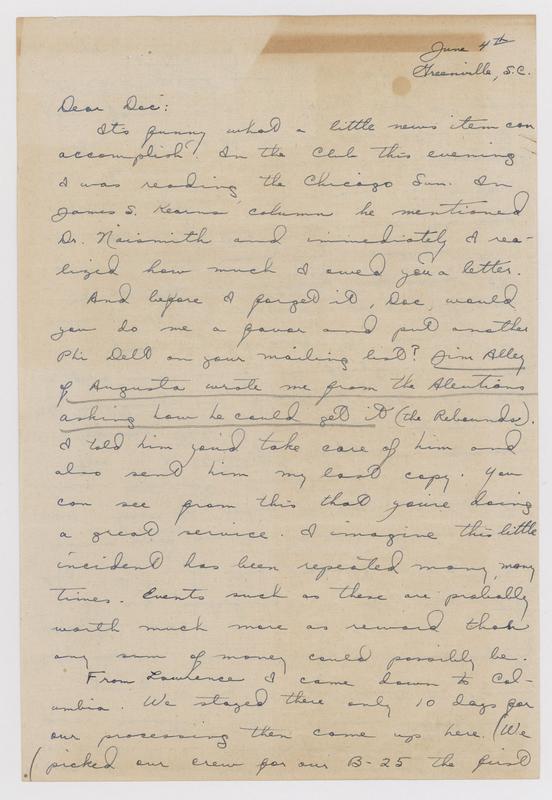 June 4th
Greenville, S.C.
Dear Doc:
It's funny what a little news item can
accomplish. In the Club this evening
I was reading the Chicago Sun. In
James S. Kearns' column he mentioned
Dr. Naismith and immediately I rea-
lized how much I owed you a letter.
And before I forget it, Doc, would
you do me a favor and put another
Phi Delt on your mailing list? Jim Alley
of Augusta wrote me from the Aleutians
asking how he could get it (the Rebounds).
I told him you'd take care of him and
also send him my last copy. You
can see from this that you're doing
a great service. I imagine this little
incident has been repeated many, many
times. Events such as these are probably
worth much more as reward than
any sum of money could possibly be.
From Lawrence I came down to Col-
umbia. We stayed there only 10 days for
our processing then came up here. (We
(picked our crew for our B-25 the first